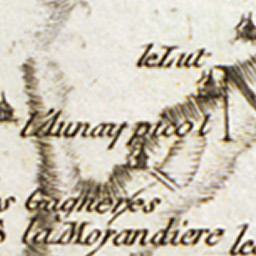 le Lut
l'aunay picot
Gagneres
la Morandiere